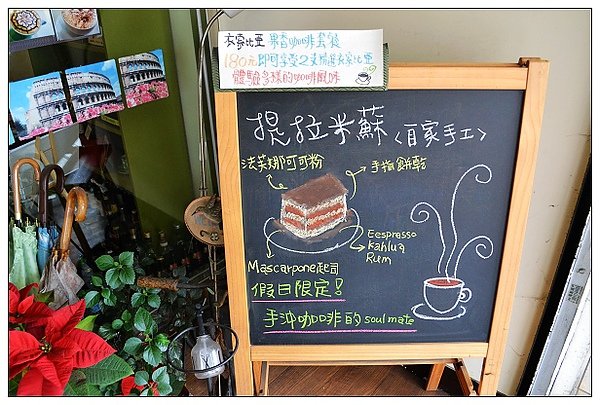 衣索比亞 果香咖啡套餐
180元即可享受2支精選衣索比亞
體驗多樣的咖啡風味
提拉米蘇〈百家手工〉
法芙娜可可粉
手指餅乾
Eespresso
Kahlua
Rum
Mascarpone起司
假日限定!
手沖咖啡的soulmate